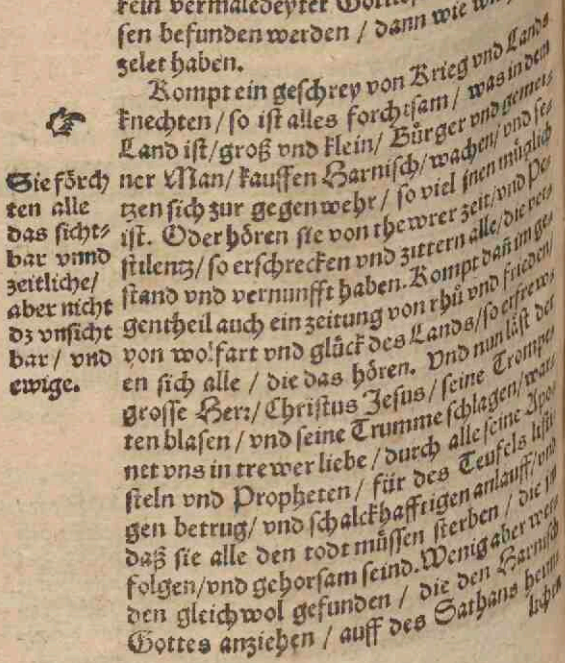 kein vermaledeyter
sen befunden werden / dann wie
zelet haben.
Kompt ein geschrey von Krieg vnd Lands
knechten / so ist alles forchtsam / was in dem
Land ist / groß vnd klein / Bürger vnd gemei-
ner Man / kauffen Harnisch / wachen / vnd se-
tzen sich zur gegenwehr / so viel jnen müglich
ist. Oder hören sie von thewrer zeit / vnd Pe-
stilentz / so erschrecken vnd zittern alle / die ver-
stand vnd vernunfft haben. Kompt dañ im ge-
gentheil auch ein zeitung von rhů vnd frieden /
von wolfart vnd glück des Lands / so erfrew-
en sich alle / die das hören. Vnd nun läst der
grosse Herr / Christus Jesus / seine Trompe-
ten blasen / vnd seine Trumme schlagen / war-
net vns in trewer liebe / durch alle seine Apo-
steln vnd Propheten / für des Teufels listi-
gen betrug / vnd schalckhafftigen anlauff / vnd
daß sie alle den todt müssen sterben / die jm
folgen / vnd gehorsam seind. Wenig aber wer-
den gleichwol gefunden / die den Harnisch
Gottes anziehen / auff des Sathans heim-
lichen
☞
Sie förch
ten alle
das sicht-
bar vnnd
zeitliche /
aber nicht
dz vnsicht
bar / vnd
ewige.